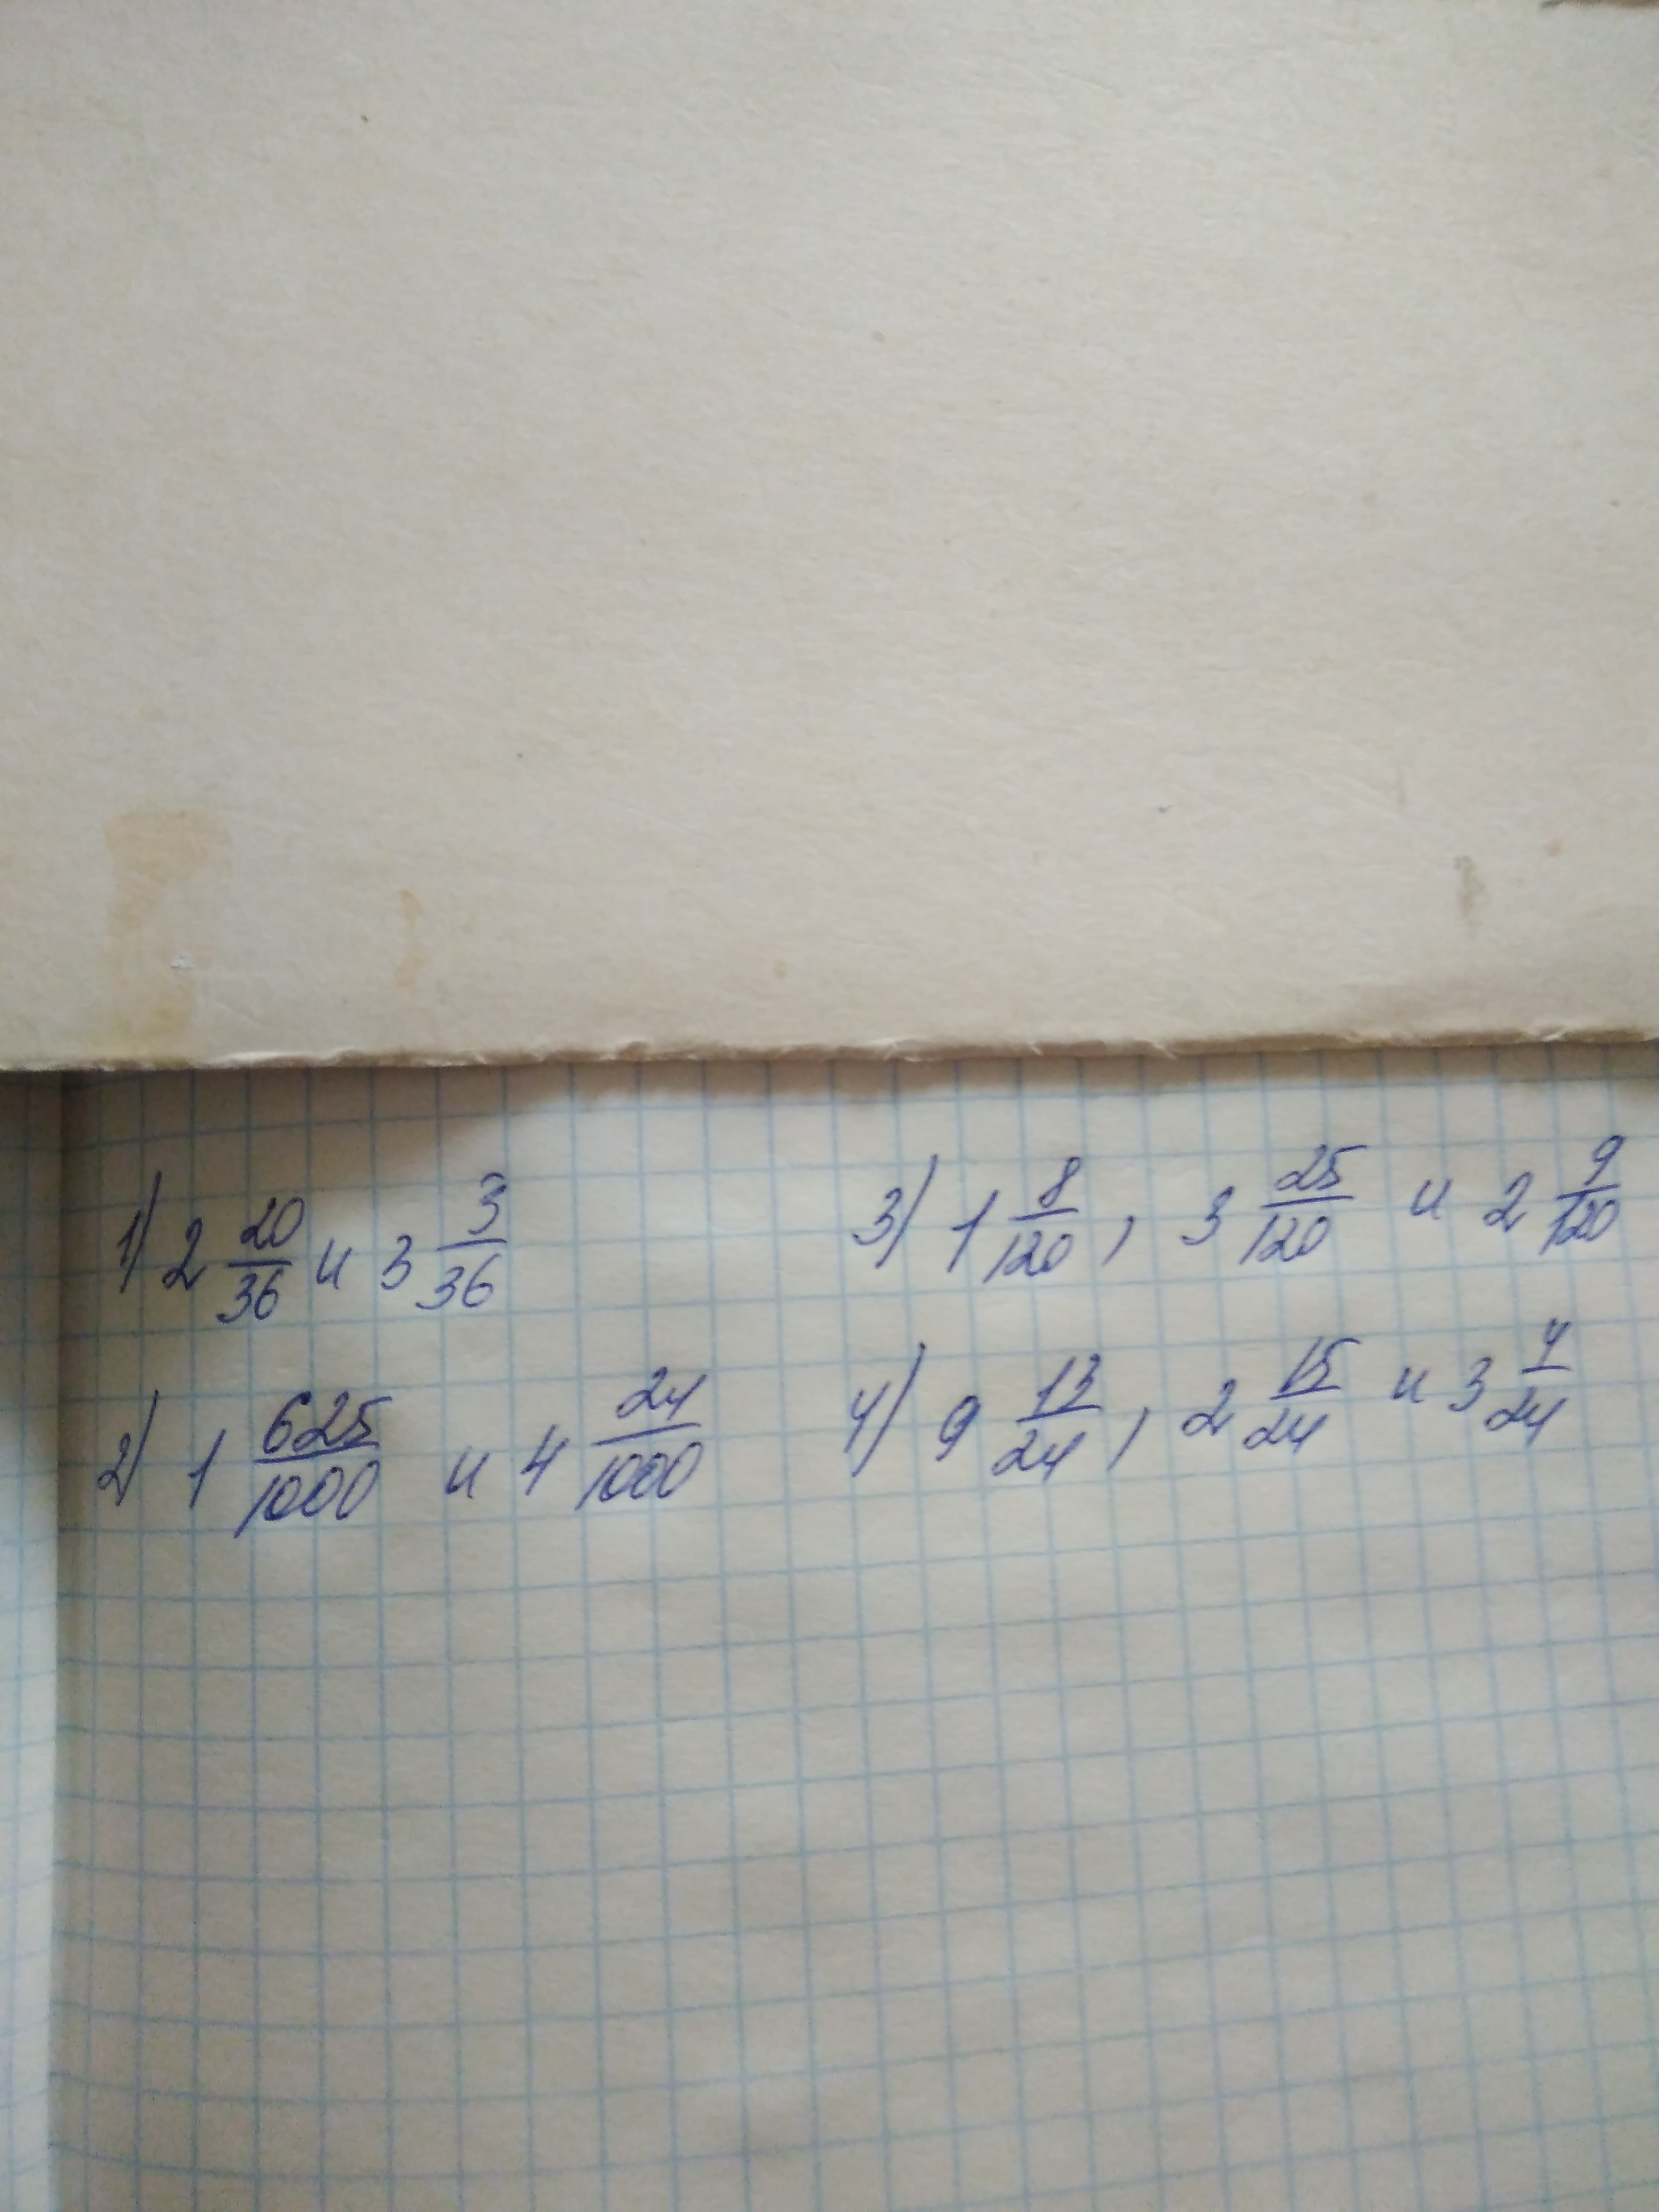 1) 2 20/36 и 3 3/36
2) 1 625/1000 и 4 24/1000
3) 1 8/120, 3 25/120 и 2 9/120
4) 9 13/24, 2 15/24 и 3 4/24